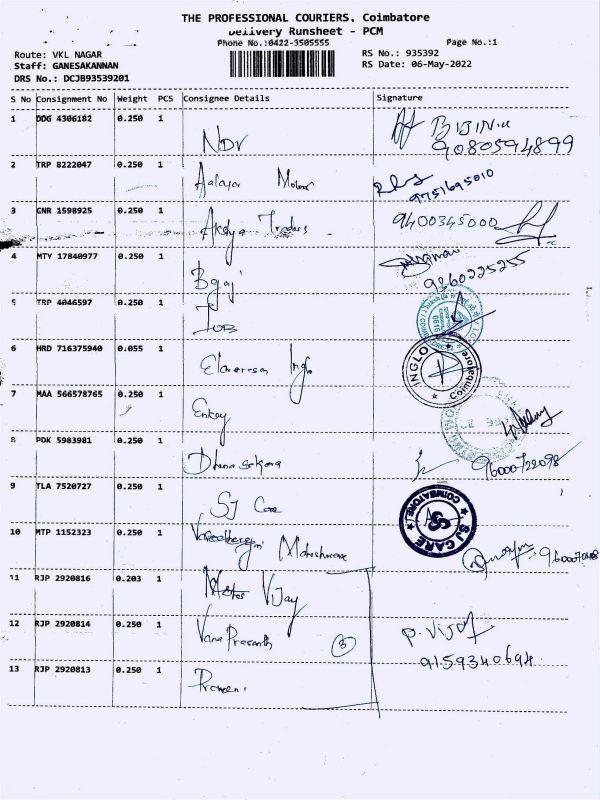 THE PROFESSIONAL COURIERS. Coimbatore
Delivery Runsheet - PCM
Phone No.:0422-3505555
Page No.:1
Route: VKL NAGAR
RS No.: 935392
Staff: GANESAKANNAN
RS Date: 06-May-2022
DRS No.: DCJB93539201
S No Consignment No Weight PCS Consignee Details Signature
1 DDG 4306182 0.250 1 NDV
9080594899
2 TRP 8222047 0.250 1
9751695010
3 GNR 1598925 0.250 1 Traders 9400345000
4 MTY 17840977 0.250 1
9860225255
5 TRP 4046597 0.250 1 IOB
6 HRD 716375940 0.055 1
INGLO Coimbatore
7 MAA 566578765 0.250 1 Enkay
8 PDK 5983981 0.250 1 Dhana sekara 96000722098
9 TLA 7520727 0.250 1 SJ Care
SJ CARE COIMBATORE
10 MTP 1152323 0.250 1
11 RJP 2920816 0.203 1 Vijay
12 RJP 2920814 0.250 1 Vana Prasanth 3
P. Vijay
9159340694
13 RJP 2920813 0.250 1